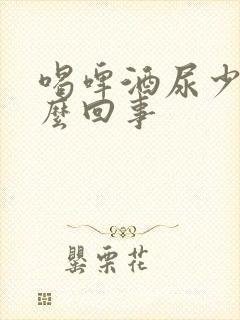 喝啤酒尿少
麼回事
罌栗花